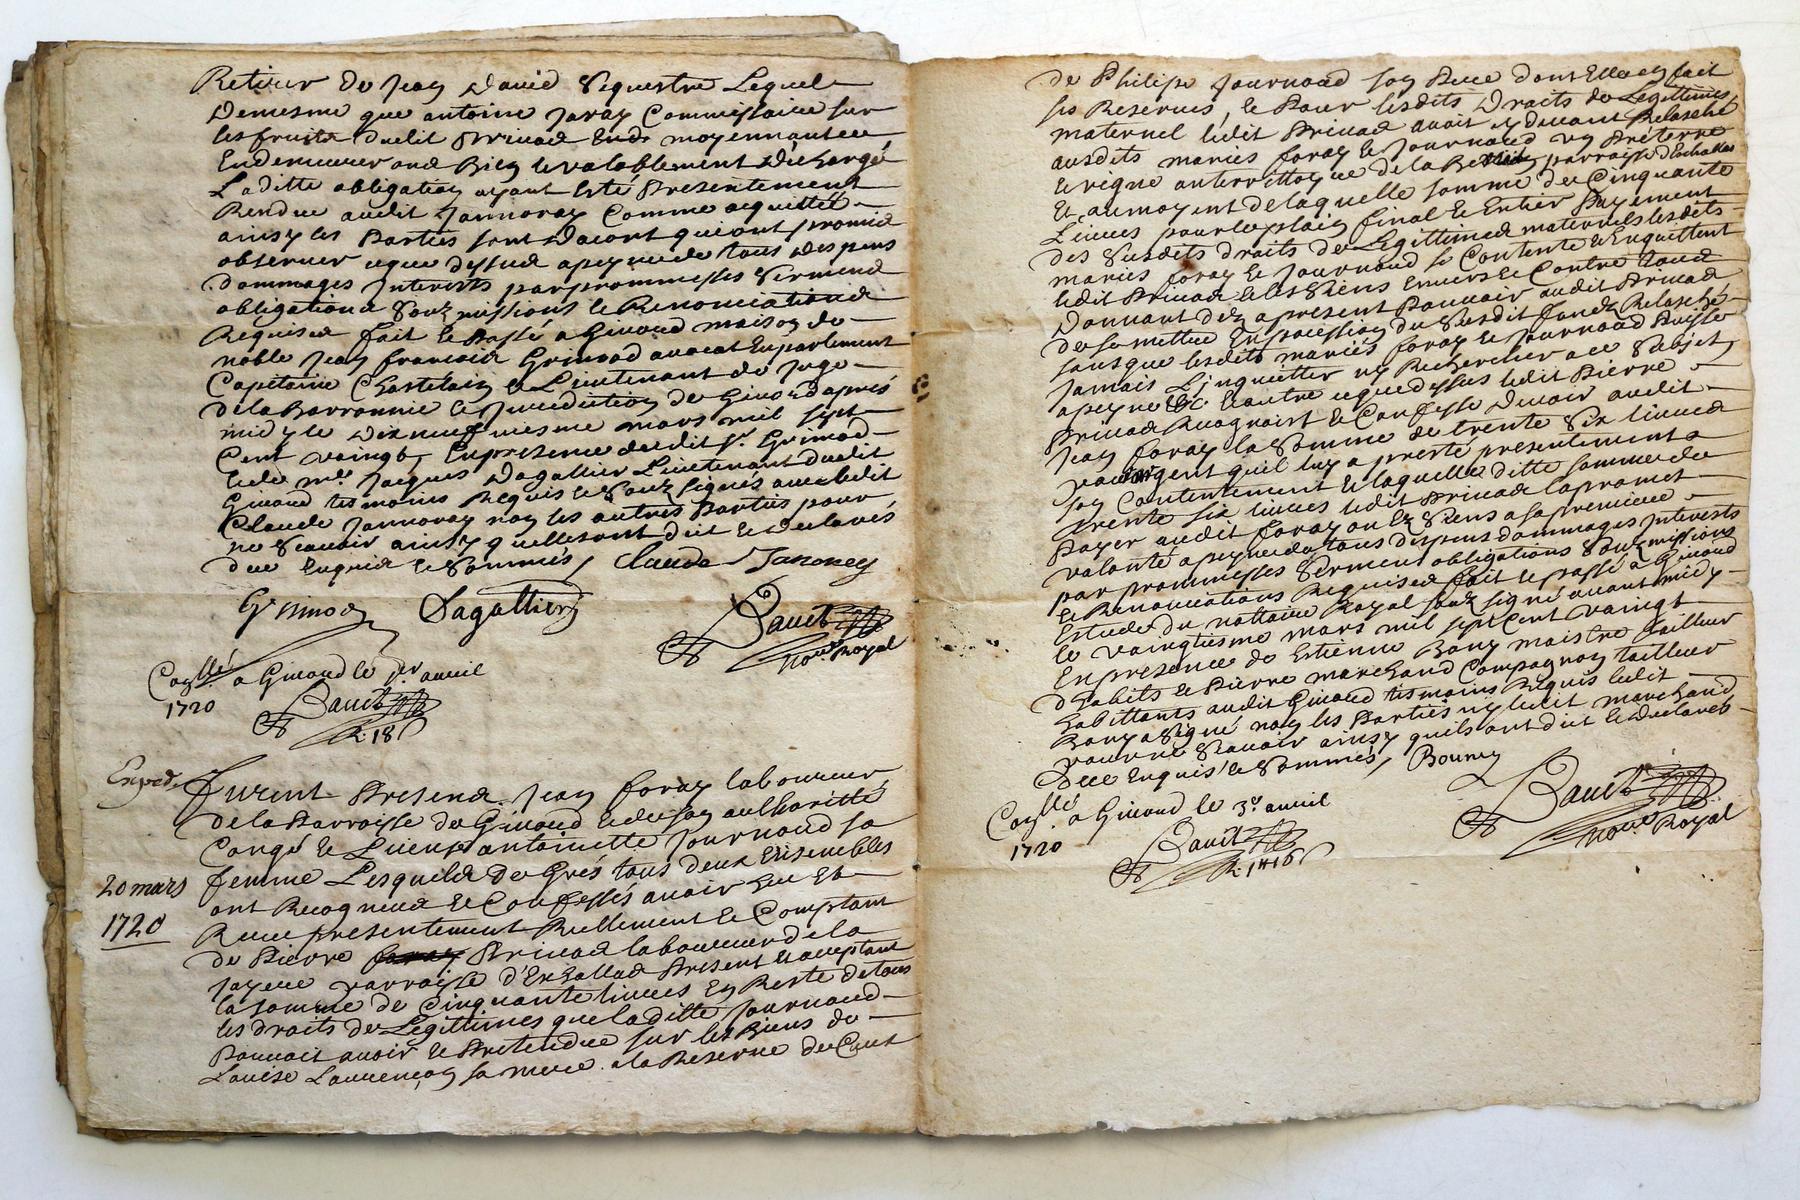 Retirer de Jean David Sequestre Lequel
Demesme que antoine Jaray Commissaire sur
les fruits dudit Privad Endt moyennant ce
Endemeurerond Bien et valablement deschargé
Laditte obligation ayant Esté Présentement
Rendue audit Jannoray Comme acquittée
ainsy les Parties sont dacort qui ont promis
observer ce que dessus a peyne de tous despens
dommages Interests par prommesses Serments
obligations Soubmissions et Renonciations
Requises fait et Passé a Givord maison de
noble Jean françois Grimod avocat En parlement
Capitaine Chastelain et Lieutenant de Juge
de la Barronnie et Jurediction de Givord après
midy le dixneufviesme mars mil sept
Cent vaingt En presence dudit Sr. Grimod
et de Mr. Jacques Dagallier Lieutenant dudit
Givord tesmoins Requis et Soubsignés avec ledit
Claude Jannoray non les autres Parties pour
ne Scavoir ainsy quelles ont dict et declarés
due Enquis et Sommés, Claude Janorey
Grimod Dagallier Bauet
nore. Royal
Conllé a Givord le 1er avril
1720 Bauet
R. 18
Exped.
Furent Presend Jean foray laboureur
de la Parroisse de Givord et de son authoritté
Congé et Licence antoinette Journoud sa
20 mars femme Lesquels de Grés tous deux Ensembles
ont Recogneus et Confessés avoir Eu Et
1720 Receu presentement Reellement et Comptant
de Pierre foray Privad laboureur de la
Jayere parroisse d'Eschallad Present et acceptant
la somme de Cinquante livres En Reste de tous
les droits de Legittimes que laditte Journoud
Pouvoit avoir et Pretendre sur les Biens de
Louise Laurençon sa mere a la Reserve de Ceux
de Philipe Journoud son Pere dont Elle en fait
ses Reserves, et Pour lesdits droits de Legittimes
maternel ledit Privad avoit cy devant Relasché
ausdits mariés foray et Journoud un Prétexre
et vigne parroisse d'Eschallas
Et au moyent de laquelle somme de Cinquante
Livres pour le plain final et Entier Payement
des Susdits droits de Legittimes maternels lesdits
mariés foray et Journoud se Contente et En quittent
ledit Privad et les Siens Envers et Contre tous
Donnant dez a present Pouvoir audit Privad
de se mettre En possession du Susdit fondz Relasché
sans que lesdits mariés foray et Journoud Puisse
Jamais L'inquietter ny Rechercher a ce Subjet
a peyne &c. Et autre ce que dessus ledit Pierre
Privad Recognoist et Confesse devoir audit
Jean foray la Somme de trente Six livres
pour argent quil luy a presté presentement a
son Contentement Et laquelle ditte somme de
trente six livres ledit Privad la promet
Payer audit foray ou Ez Siens a sa premiere
volonté a peyne de tous despens dommages Interests
par prommesses Serment obligations Soubmissions
et Renonciations Requises fait et passé a Givord
Estude du nottaire Royal soubsigné avant midy
le vaingtiesme mars mil sept Cent vaingt
En presence de Estienne Bony maistre tailleur
d'habits et Pierre marchand Compagnon tailleur
habittants audit Givord tesmoins Requis ledit
Bony a Signé non les Parties ny ledit marchand
pour ne Scavoir ainsy quils ont dict et declarés
dece Enquis et Sommés, Bouny
Bauet
nore Royal
Conllé a Givord le 3e. avril
1720 Bauet